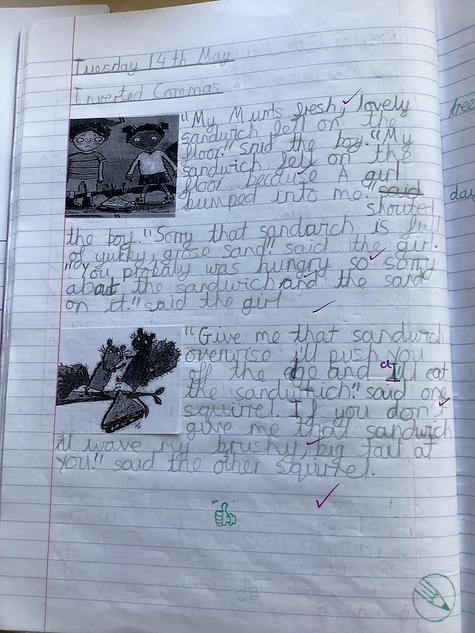 Tuesday 14th May
Inverted Commas
"My Mums fresh, lovely
sandwich fell on the
floor." said the boy. "My
sandwich fell on the
floor because A girl
bumped into me." said
shouted
the boy. "Sorry that sandwich is full
of yukky, grose sand" said the girl.
"You probaly was hungry so sorry
about the sandwich and the sand
on it." said the girl
"Give me that sandwich
overwise ill push you
off the and I'll eat
the sandwhich." said one
squirrel. If you don't
give me that sandwich
ill wave my brushy, big tail at
you!" said the other squirrel.